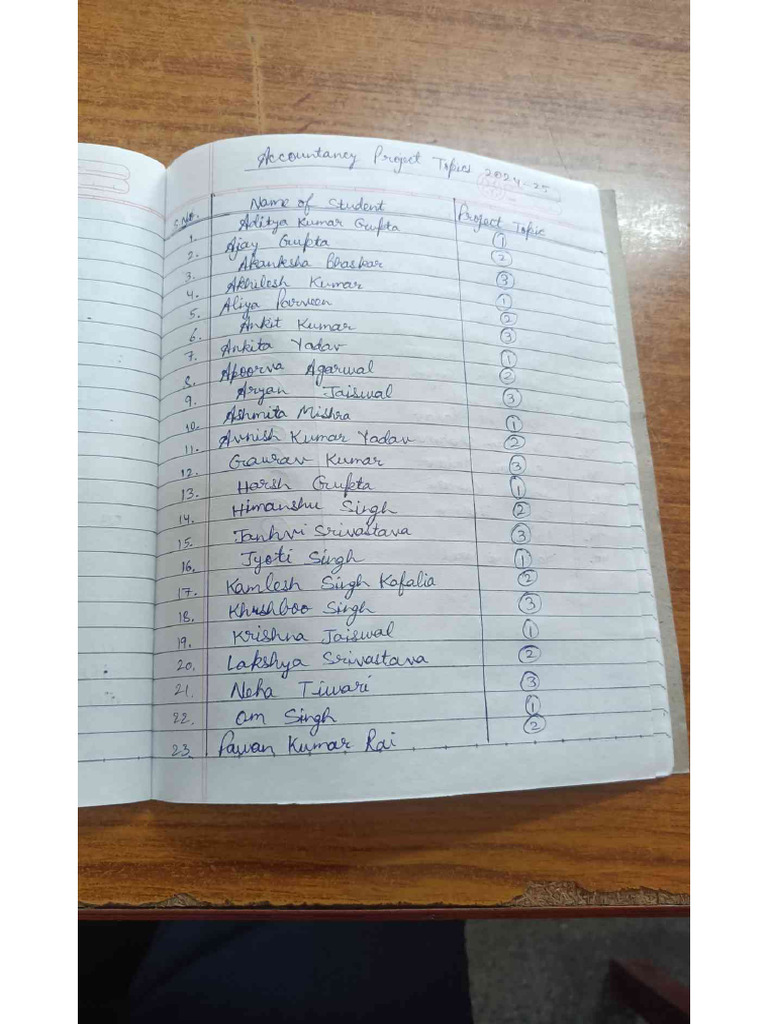 Accountancy Project Topics 2024-25
S.No. Name of Student Project Topic
1. Aditya Kumar Gupta ①
2. Ajay Gupta ②
3. Akanksha Bhaskar ③
4. Akhilesh Kumar ①
5. Aliya Parveen ②
6. Ankit Kumar ③
7. Ankita Yadav ①
8. Apoorva Agarwal ②
9. Aryan Jaiswal ③
10. Ashmita Mishra ①
11. Avnish Kumar Yadav ②
12. Gaurav Kumar ③
13. Harsh Gupta ①
14. Himanshu Singh ②
15. Janhvi Srivastava ③
16. Jyoti Singh ①
17. Kamlesh Singh Kafalia ②
18. Khushboo Singh ③
19. Krishna Jaiswal ①
20. Lakshya Srivastava ②
21. Neha Tiwari ③
22. Om Singh ①
23. Pawan Kumar Rai ②